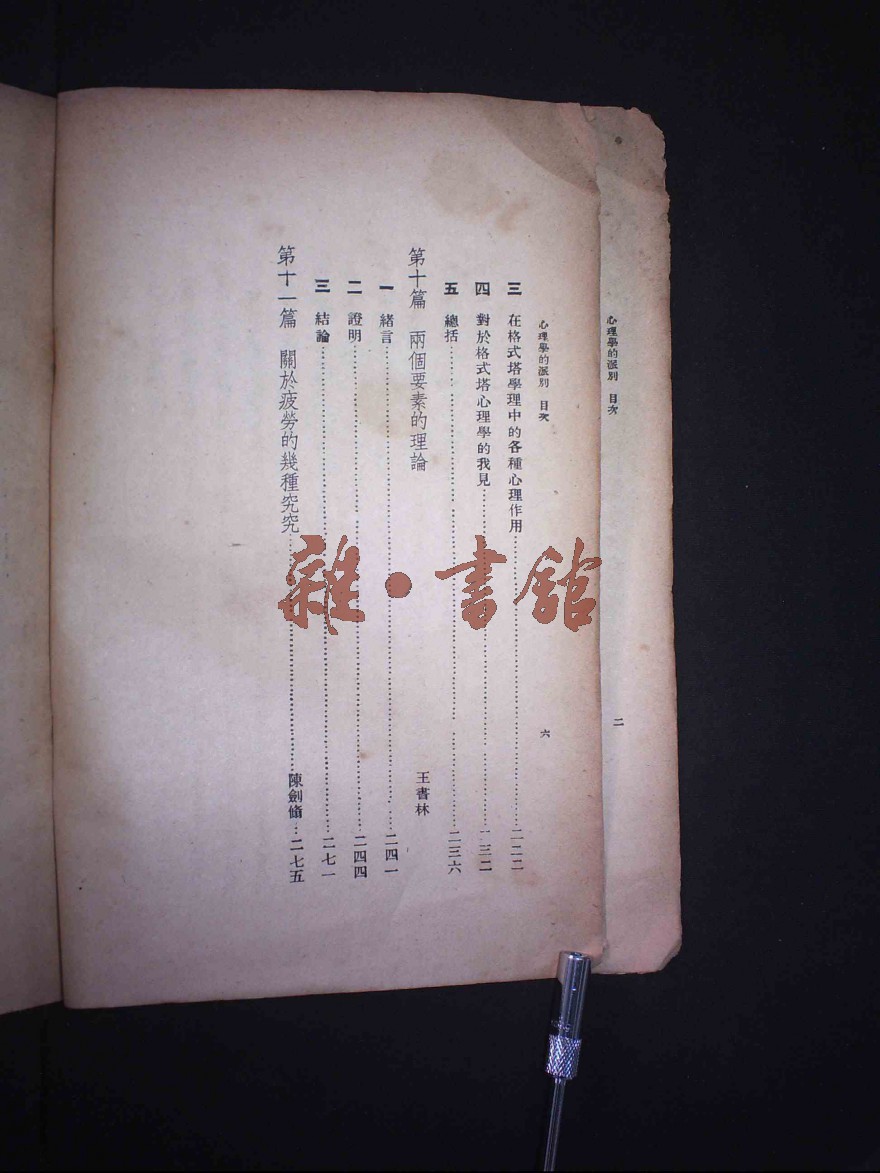 心理學的派別 目次
二
心理學的派別 目次
六
三 在格式塔學理中的各種心理作用…………二二二
四 對於格式塔心理學的我見…………二三二
五 總括…………二三六
第十篇 兩個要素的理論 王書林
一 緒言…………二四一
二 證明…………二四四
三 結論…………二七一
第十一篇 關於疲勞的幾種究究…………陳劍脩…二七五
雜·書館